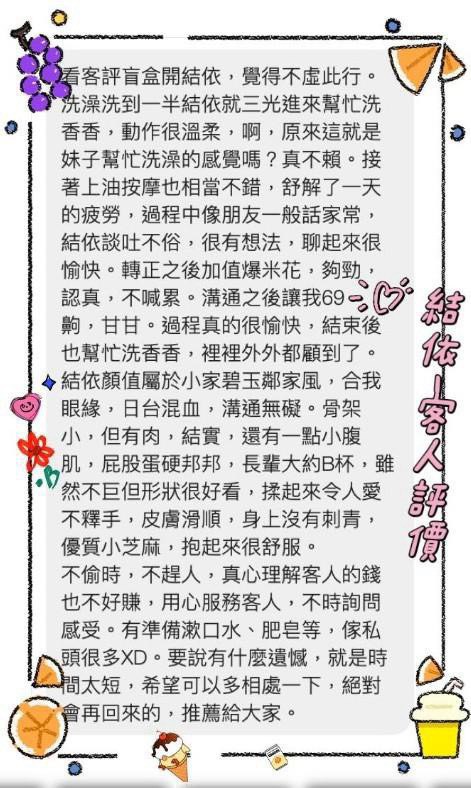 看客評盲盒開結依，覺得不虛此行。
洗澡洗到一半結依就三光進來幫忙洗
香香，動作很溫柔，啊，原來這就是
妹子幫忙洗澡的感覺嗎？真不賴。接
著上油按摩也相當不錯，舒解了一天
的疲勞，過程中像朋友一般話家常，
結依談吐不俗，很有想法，聊起來很
愉快。轉正之後加值爆米花，夠勁，
認真，不喊累。溝通之後讓我69
齁，甘甘。過程真的很愉快，結束後
也幫忙洗香香，裡裡外外都顧到了。
結依顏值屬於小家碧玉鄰家風，合我
眼緣，日台混血，溝通無礙。骨架
小，但有肉，結實，還有一點小腹
肌，屁股蛋硬邦邦，長輩大約B杯，雖
然不巨但形狀很好看，揉起來令人愛
不釋手，皮膚滑順，身上沒有刺青，
優質小芝麻，抱起來很舒服。
不偷時，不趕人，真心理解客人的錢
也不好賺，用心服務客人，不時詢問
感受。有準備漱口水、肥皂等，傢私
頭很多XD。要說有什麼遺憾，就是時
間太短，希望可以多相處一下，絕對
會再回來的，推薦給大家。
結依-客人評價